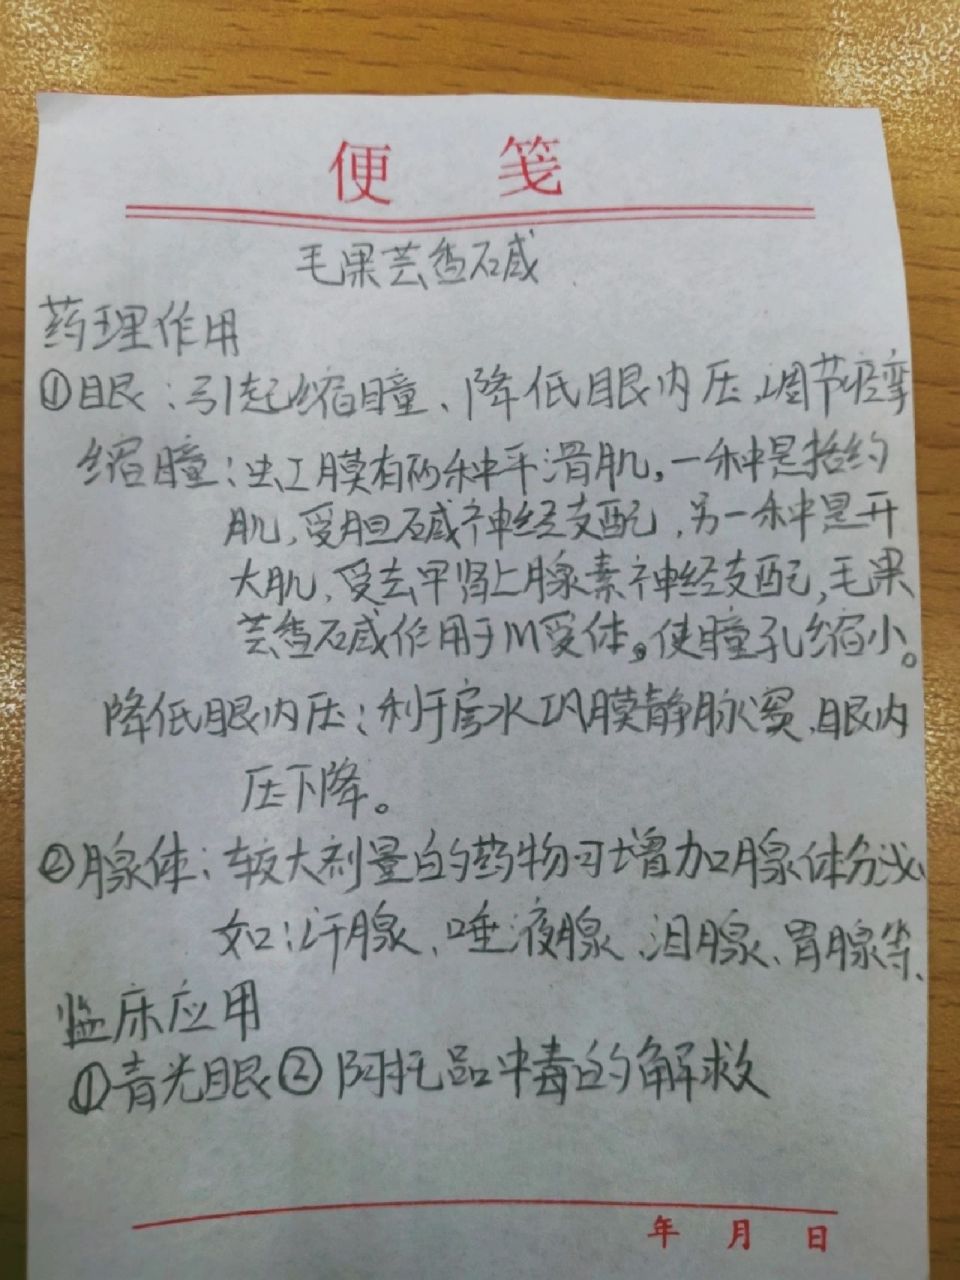 便 笺
毛果芸香碱
药理作用
①眼：引起缩瞳、降低眼内压、调节痉挛
缩瞳：虹膜有两种平滑肌，一种是括约
肌，受胆碱神经支配，另一种是开
大肌，受去甲肾上腺素神经支配，毛果
芸香碱作用于M受体，使瞳孔缩小。
降低眼内压：利于房水巩膜静脉窦，眼内
压下降。
②腺体：较大剂量的药物可增加腺体分泌
如：汗腺、唾液腺、泪腺、胃腺等、
临床应用
①青光眼②阿托品中毒的解救
年 月 日